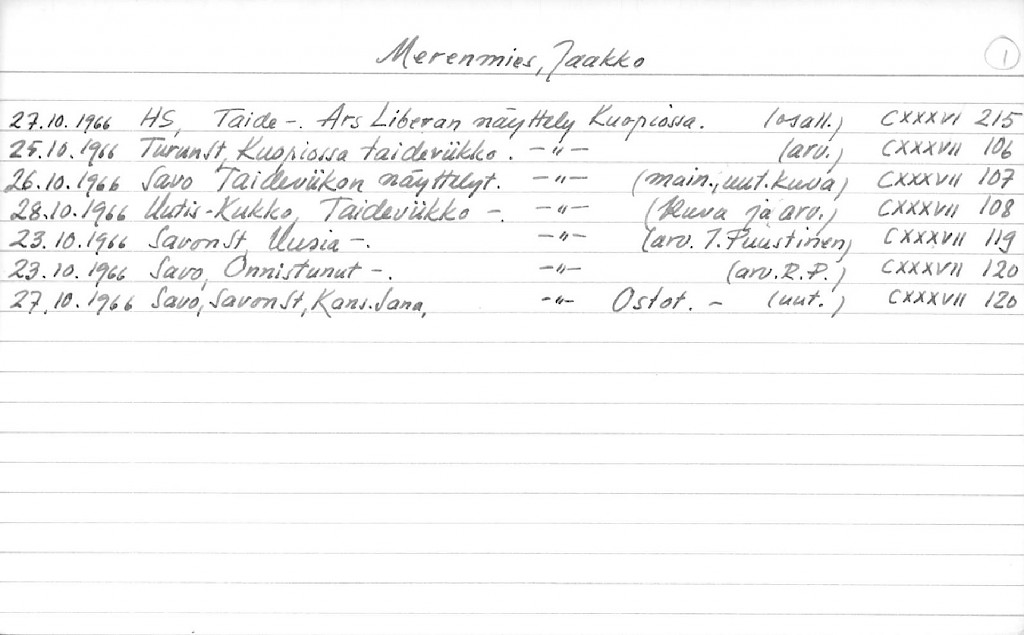 Merenmies, Jaakko 1
27.10.1966 HS, Taide -. Ars Liberan näyttely Kuopiossa. (osall.) CXXXVI 215
25.10.1966 TurunSt, Kuopiossa taideviikko. -"- (arv.) CXXXVII 106
26.10.1966 Savo Taideviikon näyttelyt. -"- (main., uut. kuva) CXXXVII 107
28.10.1966 Uutis-Kukko, Taideviikko -. -"- (kuva ja arv.) CXXXVII 108
23.10.1966 SavonSt, Uusia -. -"- (arv. J. Puustinen) CXXXVII 119
23.10.1966 Savo, Onnistunut -. -"- (arv. R.P.) CXXXVII 120
27.10.1966 Savo, SavonSt, Kans.Sana, -"- Ostot. - (uut.) CXXXVII 120